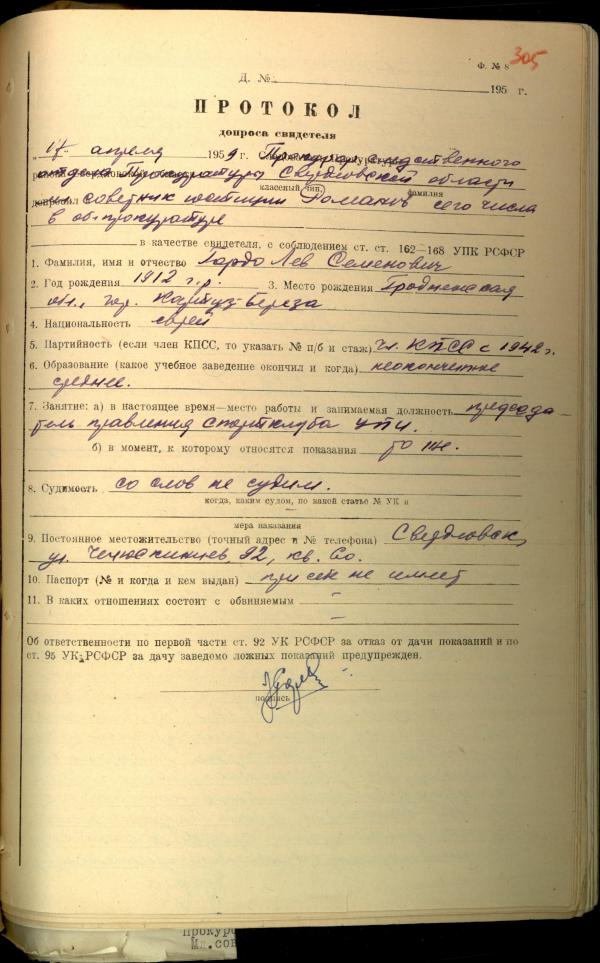 305
Ф. № 8
Д. № 195 г.
ПРОТОКОЛ
допроса свидетеля
„17“ апреля 1959 г. Прокурор следственного
отдела Прокуратуры Свердловской области
классный чин, фамилия
допросил советник юстиции Романов сего числа
в облпрокуратуре
в качестве свидетеля, с соблюдением ст. ст. 162—168 УПК РСФСР
1. Фамилия, имя и отчество Гордо Лев Семенович
2. Год рождения 1912 г.р. 3. Место рождения Гродненская
обл., гор. Картуз-Береза
4. Национальность еврей
5. Партийность (если член КПСС, то указать № п/б и стаж) чл. КПСС с 1942 г.
6. Образование (какое учебное заведение окончил и когда) неоконченное
среднее.
7. Занятие: а) в настоящее время—место работы и занимаемая должность председа-
тель правления спортклуба УПИ.
б) в момент, к которому относятся показания то же.
8. Судимость со слов не судим.
когда, каким судом, по какой статье № УК и
мера наказания
9. Постоянное местожительство (точный адрес и № телефона) Свердловск,
ул. Челюскинцев, 92, кв. 60.
10. Паспорт (№ и когда и кем выдан) при себе не имеет
11. В каких отношениях состоит с обвиняемым —
—
Об ответственности по первой части ст. 92 УК РСФСР за отказ от дачи показаний и по
ст. 95 УК РСФСР за дачу заведомо ложных показаний предупрежден.
подпись
Мл. сов